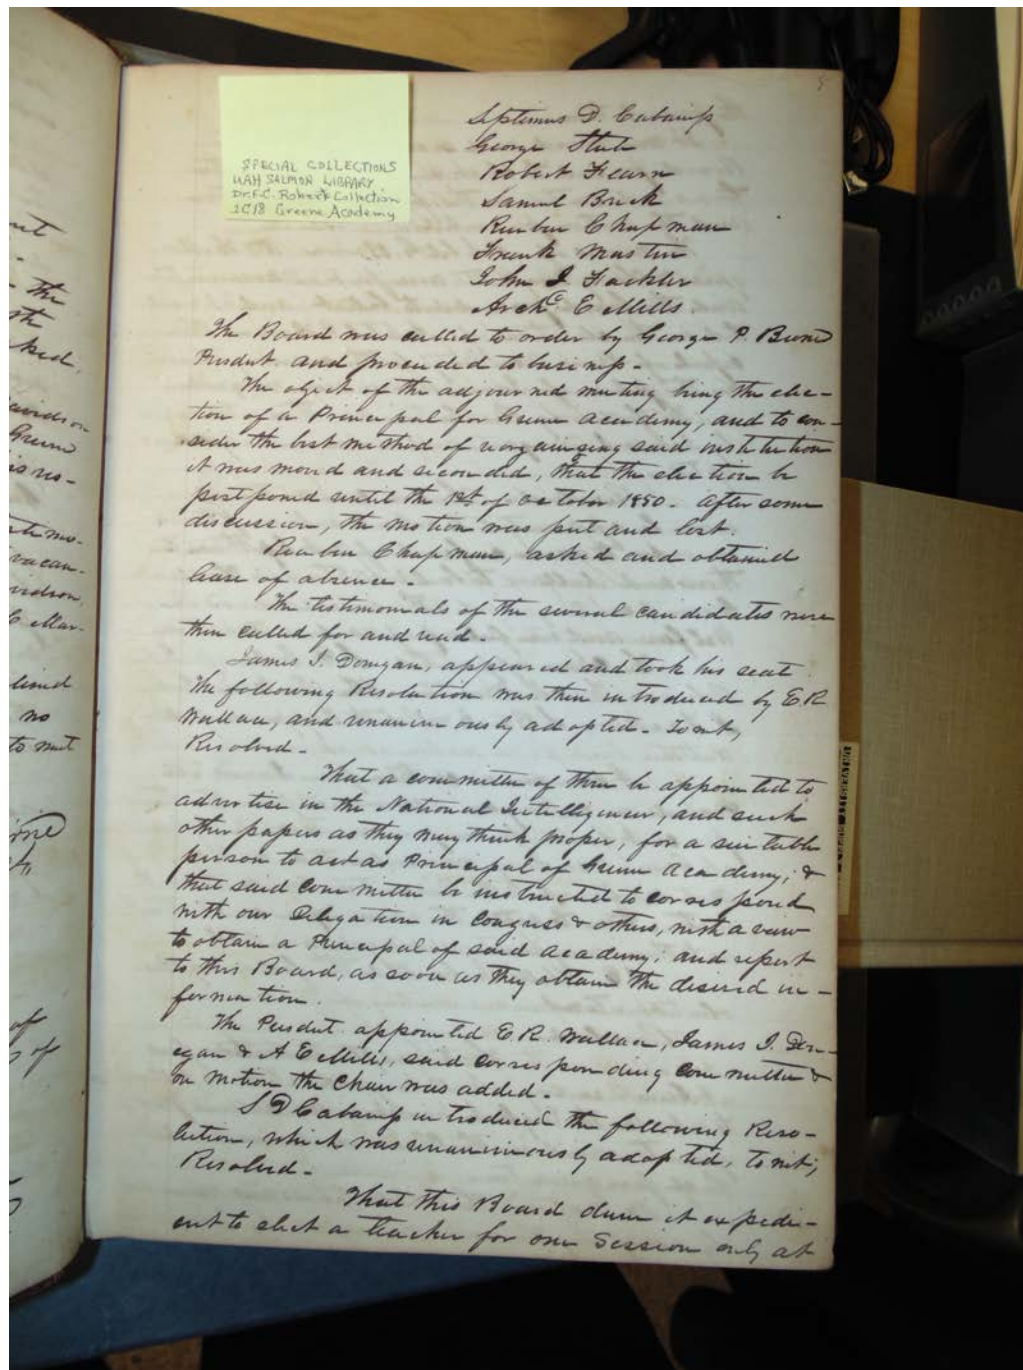 SPECIAL COLLECTIONS
UAH SALMON LIBRARY
Dr. F.C. Roberts Collection
1C18 Greene Academy
Septimus D. Cabaniss
George Steele
Robert Fearn
Samuel Breck
Reuben Chapman
Frank Mastin
John J. Fackler
Archd E Mills.
The Board was called to order by George P. Beirne
Presdnt. and proceeded to business -
The object of the adjourned meeting being the elec-
tion of a Principal for Greene Academy, and to con-
sider the best method of reorganizing said institution
it was moved and seconded, that the election be
postponed until the 1st of October 1850. After some
discussion, the motion was put and lost.
Reuben Chapman, asked and obtained
leave of absence -
The testimonials of the several candidates were
then called for and read -
James J. Donegan, appeared and took his seat
The following Resolution was then introduced by E.R.
Wallace, and unanimously adopted - Towit,
Resolved -
That a committee of three be appointed to
advertise in the National Intelligencer, and such
other papers as they may think proper, for a suitable
person to act as Principal of Greene Academy; &
that said committee be instructed to correspond
with our Delegation in Congress & others, with a view
to obtain a Principal of said academy; and report
to this Board, as soon as they obtain the desired in-
formation.
The Presdnt. appointed E.R. Wallace, James J. Don-
egan & A E Mills, said corresponding committee &
on motion the Chair was added -
S D Cabaniss introduced the following Reso-
lution, which was unanimously adopted, towit;
Resolved -
That this Board deem it expedi-
ent to elect a teacher for one Session only at